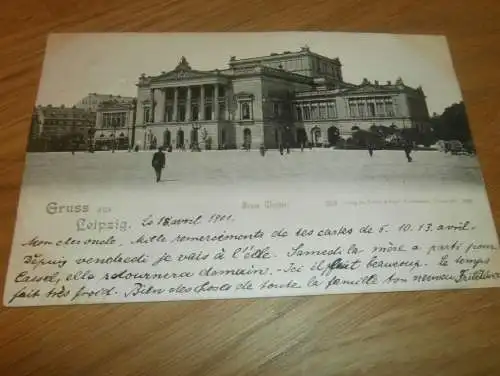 Gruss aus
Leipzig.
Neues Theater.
Le 18 avril 1901.
Mon cher oncle, Mille remerciements de tes cartes de 6. 10. 13. avril.
Depuis vendredi je vais à l'école. Samedi la mère a parti pour
Cassel, elle retournera demain. - Ici il pleut beaucoup. Le temps
fait très froid. Bien des choses de toute la famille ton neveu